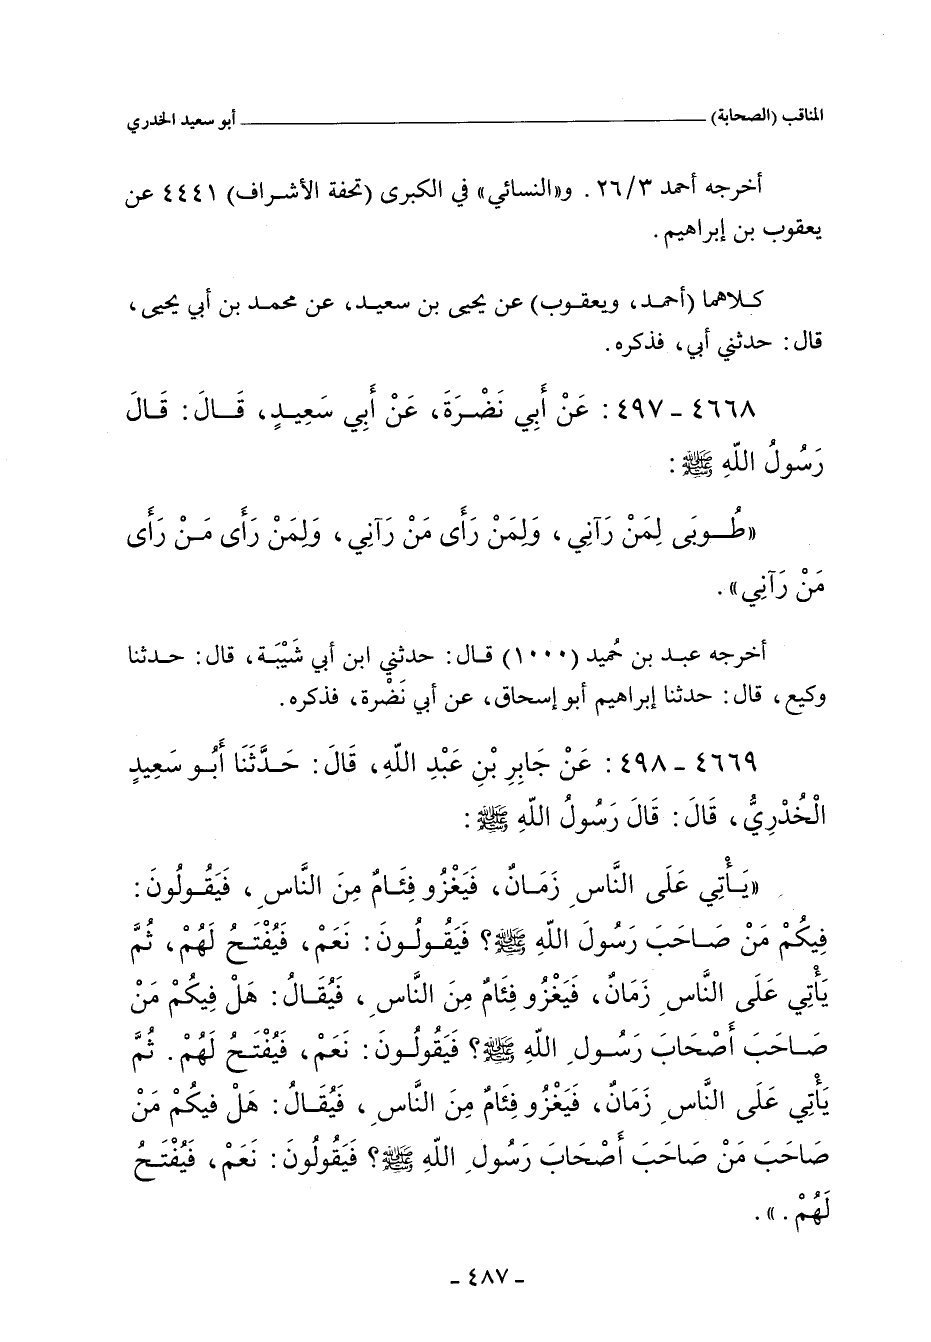 المناقب (الصحابة) ــــــــــــــــــــ أبو سعيد الخدري
أخرجه أحمد ٢٦/٣ . و«النسائي» في الكبرى (تحفة الأشراف) ٤٤٤١ عن
يعقوب بن إبراهيم .
كلاهما (أحمد، ويعقوب) عن يحيى بن سعيد، عن محمد بن أبي يحيى،
قال: حدثني أبي، فذكره.
٤٦٦٨ - ٤٩٧: عَنْ أَبِي نَضْرَةَ، عَنْ أَبِي سَعِيدٍ، قَالَ: قَالَ
رَسُولُ اللّهِ ﷺ:
«طُوبَى لِمَنْ رَآنِي، وَلِمَنْ رَأَى مَنْ رَآنِي، وَلِمَنْ رَأَى مَنْ رَأَى
مَنْ رَآنِي».
أخرجه عبد بن حُميد (١٠٠٠) قال: حدثني ابن أبي شَيْبَة، قال: حدثنا
وكيع، قال: حدثنا إبراهيم أبو إسحاق، عن أبي نَضْرة، فذكره.
٤٦٦٩ - ٤٩٨: عَنْ جَابِرِ بْنِ عَبْدِ اللّهِ، قَالَ: حَدَّثَنَا أَبُو سَعِيدٍ
الْخُدْرِيُّ، قَالَ: قَالَ رَسُولُ اللّهِ ﷺ:
«يَأْتِي عَلَى النَّاسِ زَمَانٌ، فَيَغْزُو فِئَامٌ مِنَ النَّاسِ، فَيَقُولُونَ:
فِيكُمْ مَنْ صَاحَبَ رَسُولَ اللّهِ ﷺ؟ فَيَقُولُونَ: نَعَمْ، فَيُفْتَحُ لَهُمْ، ثُمَّ
يَأْتِي عَلَى النَّاسِ زَمَانٌ، فَيَغْزُو فِئَامٌ مِنَ النَّاسِ، فَيُقَالُ: هَلْ فِيكُمْ مَنْ
صَاحَبَ أَصْحَابَ رَسُولِ اللّهِ ﷺ؟ فَيَقُولُونَ: نَعَمْ، فَيُفْتَحُ لَهُمْ. ثُمَّ
يَأْتِي عَلَى النَّاسِ زَمَانٌ، فَيَغْزُو فِئَامٌ مِنَ النَّاسِ، فَيُقَالُ: هَلْ فِيكُمْ مَنْ
صَاحَبَ مَنْ صَاحَبَ أَصْحَابَ رَسُولِ اللّهِ ﷺ؟ فَيَقُولُونَ: نَعَمْ، فَيُفْتَحُ
لَهُمْ.».
- ٤٨٧ -